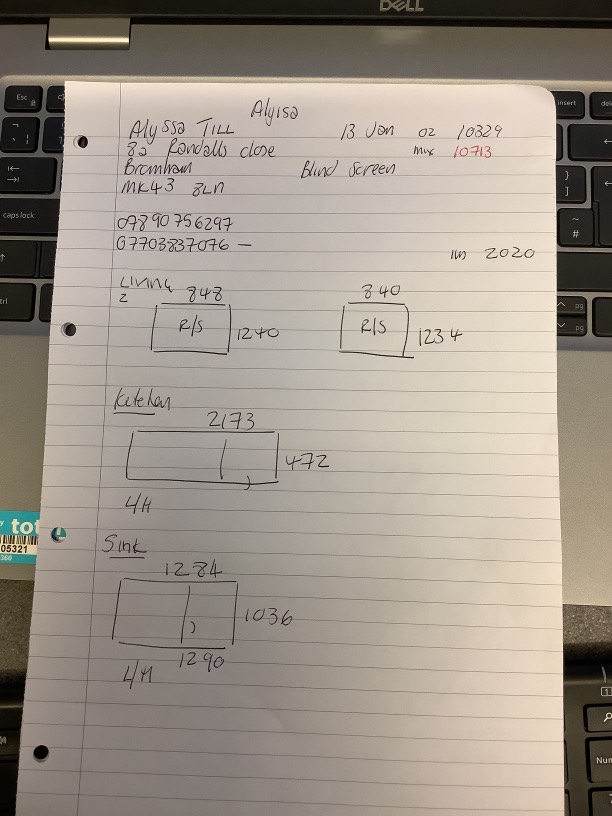 DELL
Alyisa
Alyssa TILL 13 Jan 02 10329
82 Randalls close 10713
Bromham Blind Screen
MK43 8LN
07890756297
07703837076 —
2020
LIVING
2
848 840
R/S 1240 R/S 1234
Kitchen
2173
472
L/H
Sink
1284
1036
1290
L/H
tot
05321
Esc
caps lock
insert
Num